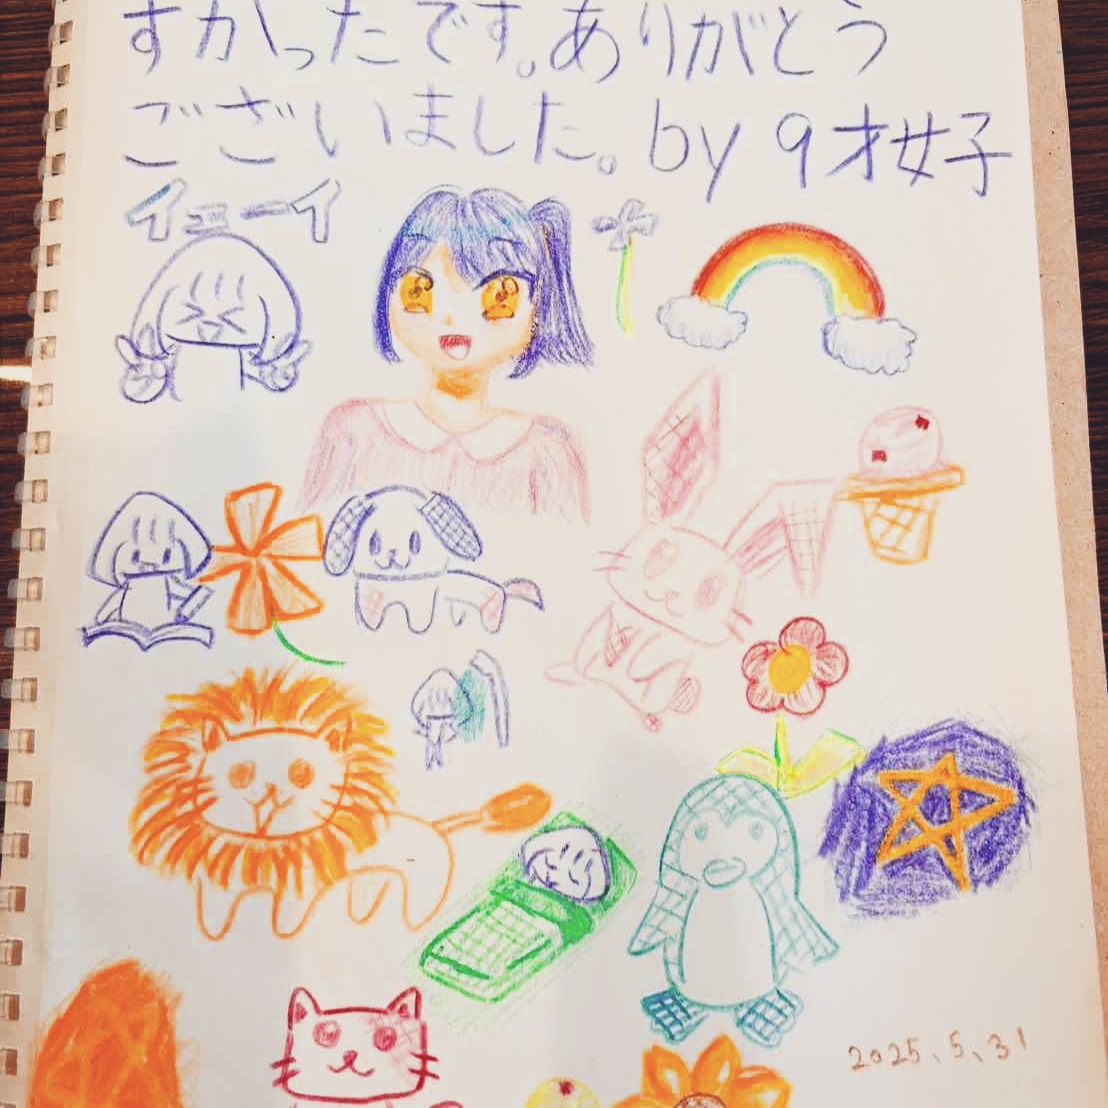 すかったです。ありがとう
ございました。by 9才女子
イェーイ
2025.5.31